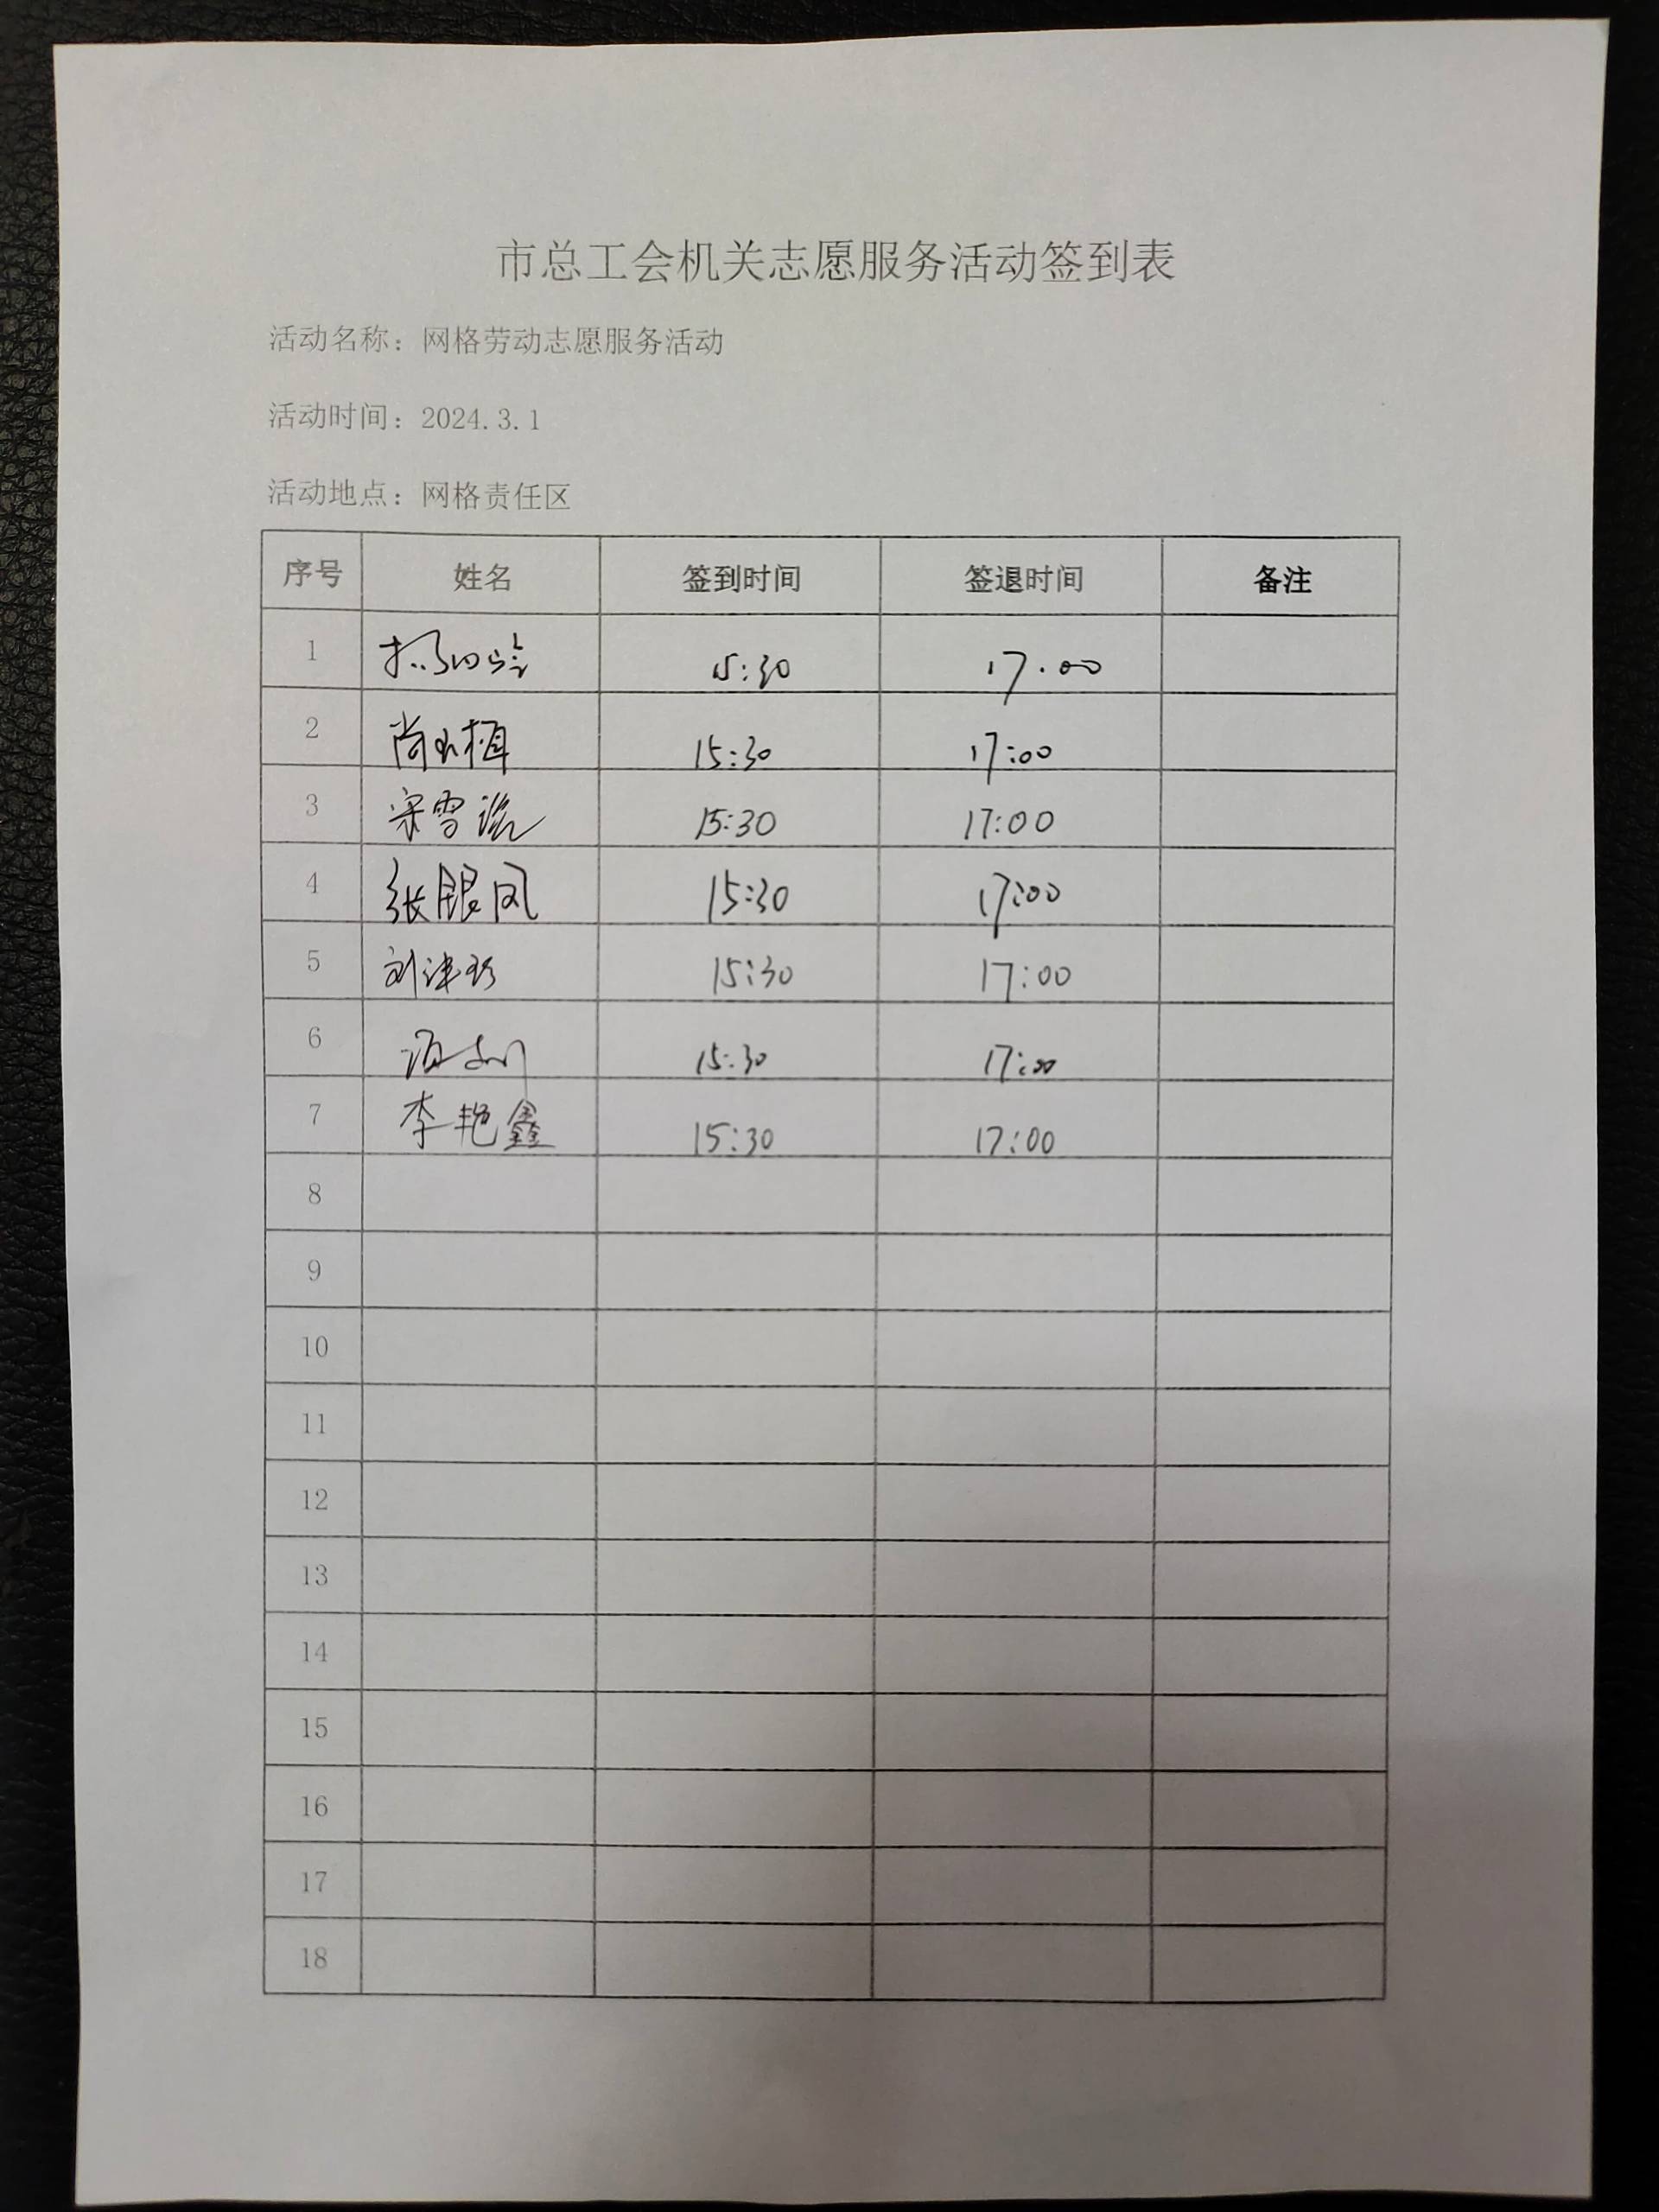 市总工会机关志愿服务活动签到表
活动名称：网格劳动志愿服务活动
活动时间：2024.3.1
活动地点：网格责任区
序号 姓名 签到时间 签退时间 备注
1 15:30 17:00
2 15:30 17:00
3 宋雪 15:30 17:00
4 张银凤 15:30 17:00
5 刘 15:30 17:00
6 15:30 17:00
7 李艳鑫 15:30 17:00
8
9
10
11
12
13
14
15
16
17
18